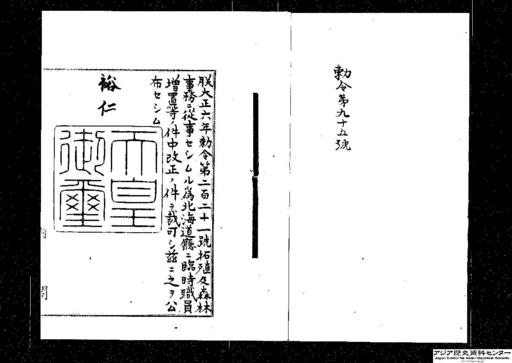 勅令第九十五號
朕大正六年勅令第二百二十一號拓殖及森林
事務ニ從事セシムル爲北海道廳ニ臨時職員
増置等ノ件中改正ノ件ヲ裁可シ茲ニ之ヲ公
布セシム
裕仁
天皇
御璽
内閣
アジア歴史資料センター
Japan Center for Asian Historical Records